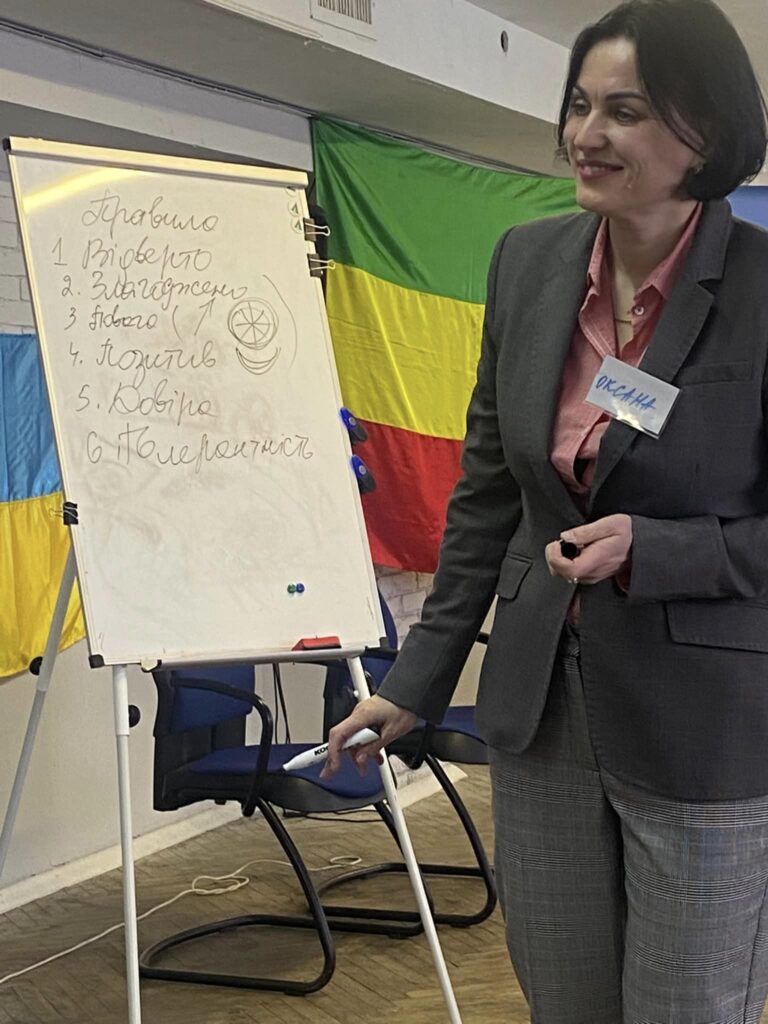 Правила
1 Відверто
2. Злагоджено
3 Повага (↑ )
4. Позитив
5. Довіра
6 Толерантність
ОКСАНА